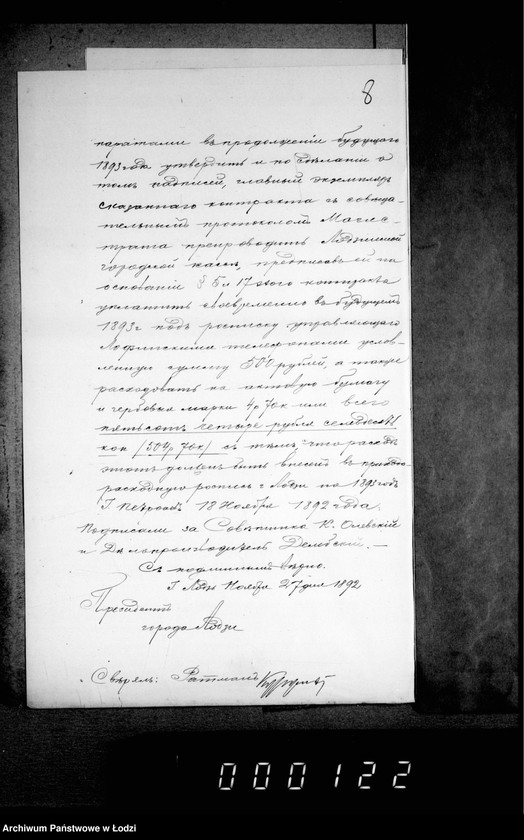 8
паратами въ продолженіи будущаго
1893 года утвердить и по сдѣланіи о
томъ надписей, главный экземпляръ
сказаннаго контракта съ совѣща-
тельнымъ протоколомъ Магис-
трата препроводить Лодзинской
городской кассѣ, предписавъ ей на
основаніи § 5 и 17 этого контракта
уплатить своевременно въ будущемъ
1893 г. подъ росписку управляющаго
Лодзинскими телефонами услов-
ленную сумму 500 рублей, а также
расходовать на актовую бумагу
и гербовыя марки 4 р 70 к или всего
пятьсотъ четыре рубля семьдесятъ
коп (504 р 70 к) съ тѣмъ, что расходъ
этотъ долженъ быть внесенъ въ приходо-
расходную роспись г. Лодзи на 1893 годъ
Г. Петроковъ 18 Ноября 1892 года.
Подписали за Совѣтника К. Олевскій
и Дѣлопроизводитель
Съ подлиннымъ вѣрно.
Г. Лодзь Ноября 27 дня 1892
Президентъ
города Лодзи
Свѣрялъ: Ратманъ
000122
Archiwum Państwowe w Łodzi